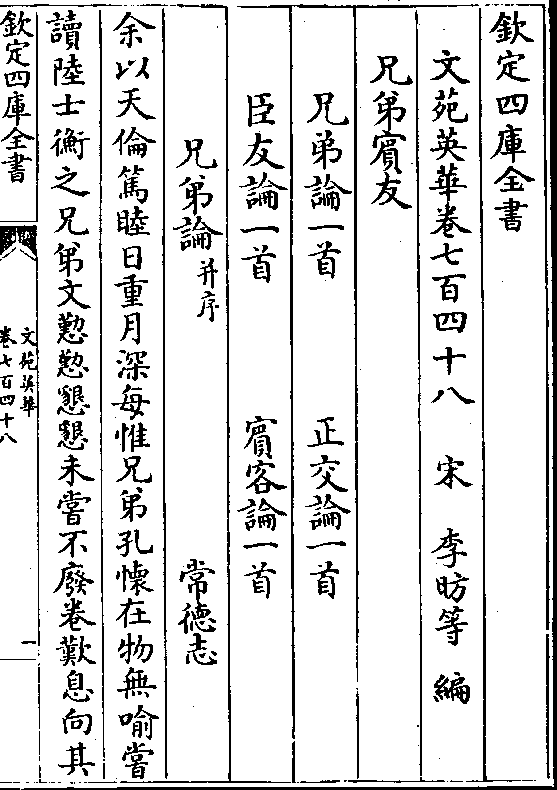 欽定四庫全書
文苑英華卷七百四十八 宋 李昉等 編
兄弟賓友
兄弟論一首 正交論一首
臣友論一首 賓客論一首
兄弟論并序 常德志
余以天倫篤睦日重月深每惟兄弟孔懷在物無喻嘗
讀陸士衡之兄弟文懃懃懇懇未嘗不廢卷歎息向其
欽定四庫全書
文苑英華
卷七百四十八
一